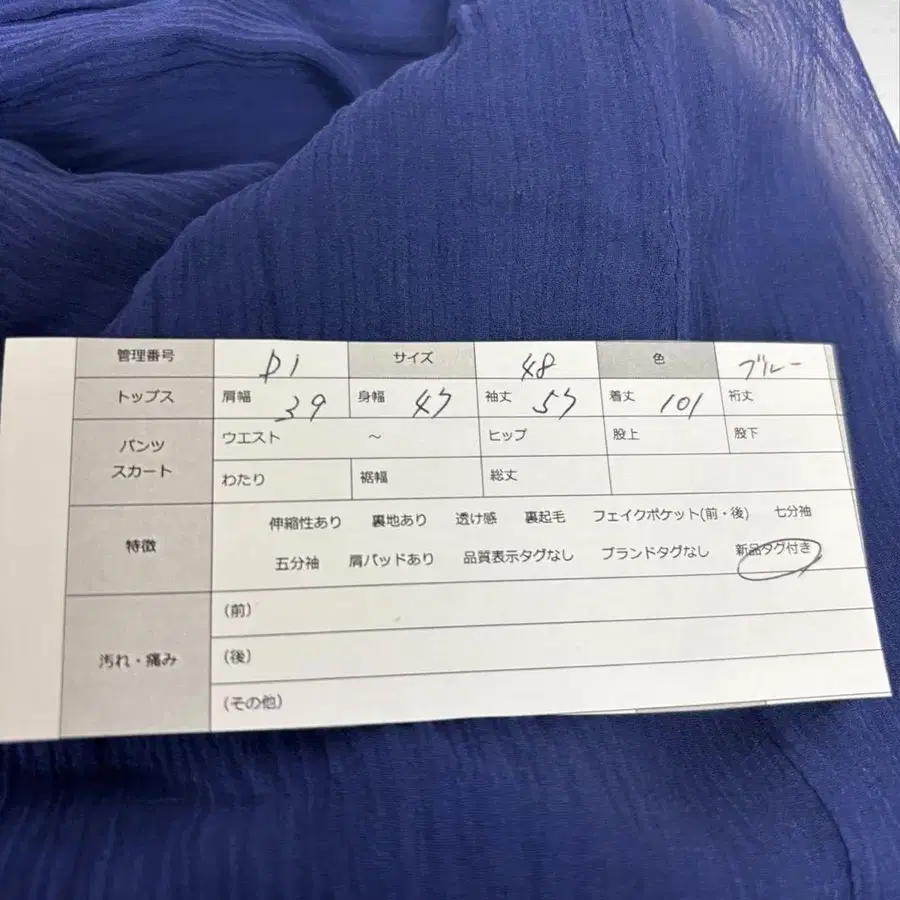 管理番号 D1 サイズ 48 色 ブルー
トップス 肩幅 39 身幅 47 袖丈 57 着丈 101 裄丈
パンツ スカート ウエスト ～ ヒップ 股上 股下
わたり 裾幅 総丈
特徴 伸縮性あり 裏地あり 透け感 裏起毛 フェイクポケット(前・後) 七分袖
五分袖 肩パッドあり 品質表示タグなし ブランドタグなし 新品タグ付き
汚れ・痛み (前)
(後)
(その他)